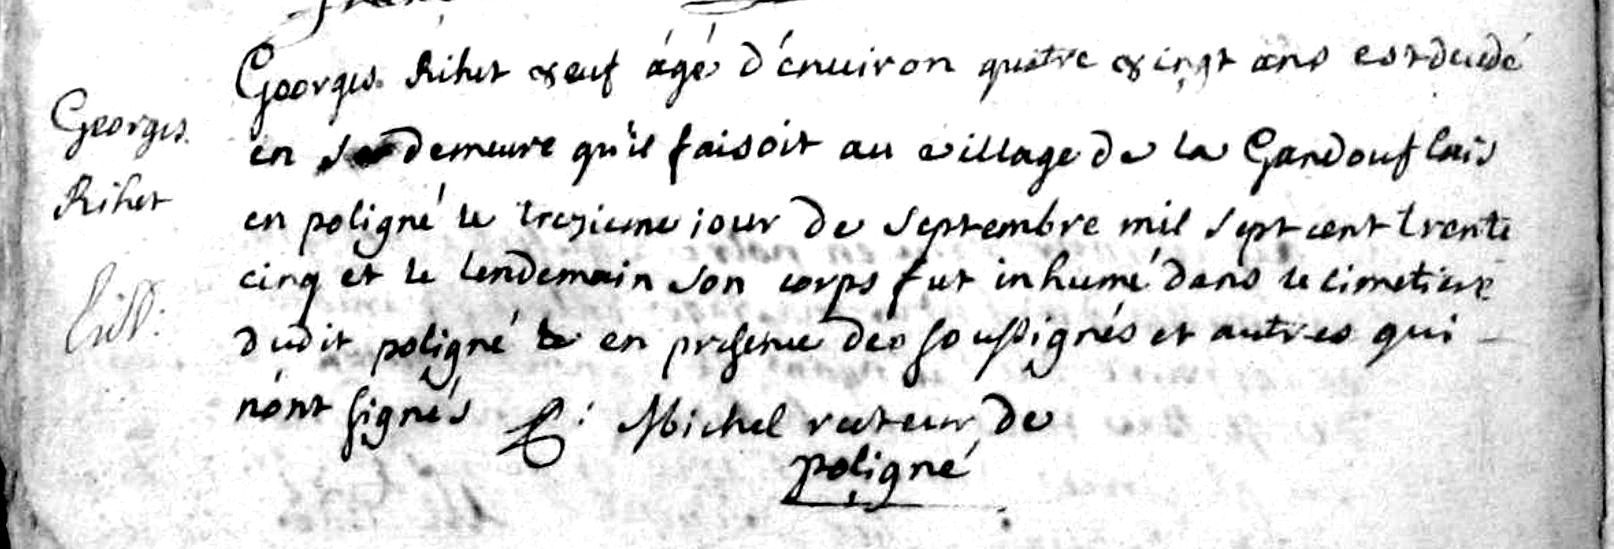 Georges Rihet veuf âgé d'énuiron quatre vingt ans est décédé
en sa demeure qu'il faisoit au village de la Gandouflais
en poligné le trezieme iour de septembre mil sept cent trente
cinq et le lendemain son corps fut inhumé dans le cimetiere
dudit poligné en presence des soussignés et autres qui
n'ont signés Michel recteur de
poligné
Georges
Rihet